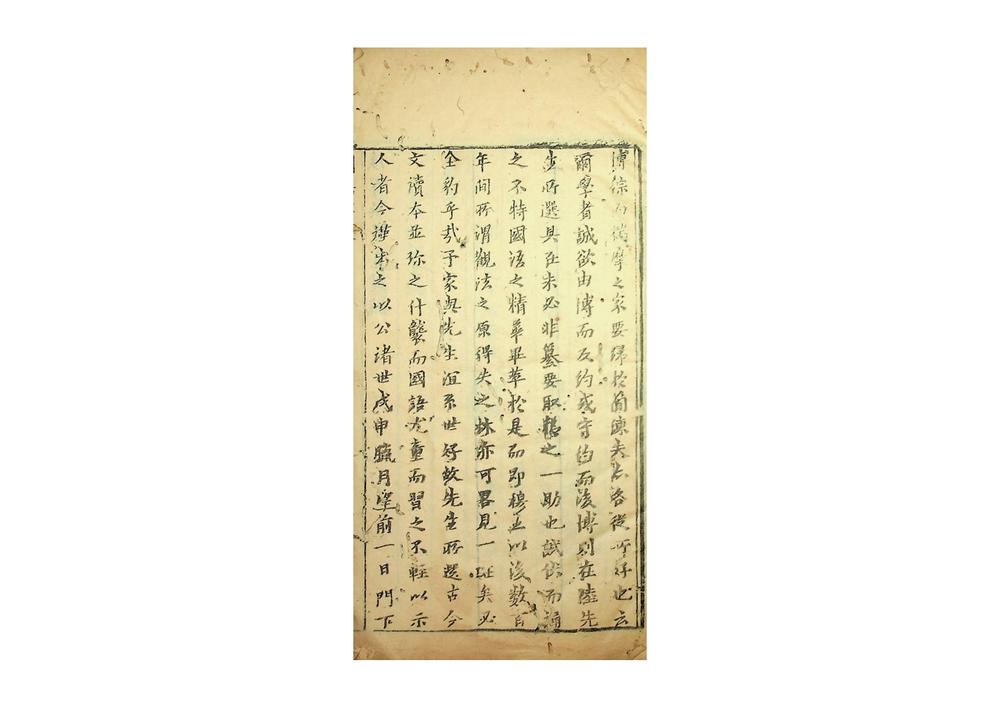 博綜而揣摩之家要歸於簡練夫亦各從所好也云
爾學者誠欲由博而反約或守約而後博則在陸先
生所選具在未必非纂要取精之一助也誠伏而誦
之不特國語之精華畢萃於是而即穆王以後數百
年間所謂觀法之原得失之林亦可畧見一斑矣必
全豹乎哉予家與先生誼系世好故先生所選古今
文讀本並珍之什襲而國語尤童而習之不輕以示
人者今梓出之以公諸世戊申臘月望前一日門下